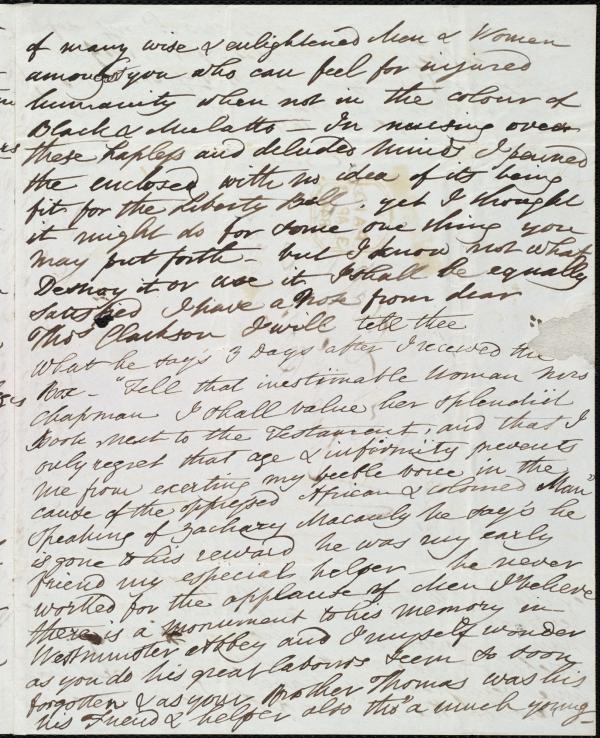 of many wise & enlightened Men & Women
amongst you who can feel for injured
humanity when not in the colour of
Black & Mulatto – In musing over
these hapless and deluded minds I penned
the enclosed with no idea of its being
fit for the Liberty Bell. yet I thought
it might do for some one thing you
may put forth – but I know not what
Destroy it or use it I shall be equally
satisfied I have a Note from dear
Thos Clarkson I will tell thee
what he says 3 Days after I received the
Box – "Tell that inestimable Woman Mrs
Chapman I shall value her splendid
Book next to the Testament; and that I
only regret that age & infirmity prevents
me from exerting my feeble voice in the
cause of the oppressed African & coloured Man"
speaking of Zachary Macauly he says he
is gone to his reward he was my early
friend my especial helper – he never
worked for the applause of Men I believe
there is a monument to his memory in
Westminster Abbey and I myself wonder
as you do his great labours seem so soon
forgotten & as your Brother Thomas was his
his Friend & helper also tho' a much young–